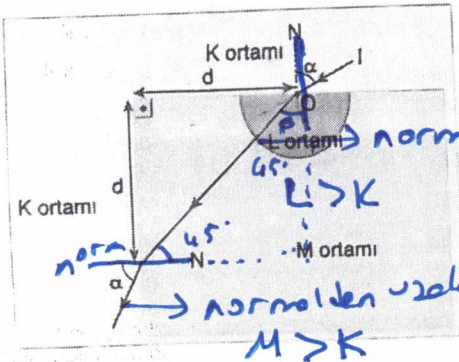 N
K ortamı
α
I
d
O
β
L ortamı
norm
45°
d
L > K
K ortamı
45°
norm
N
M ortamı
α
normalden uzak
M > K